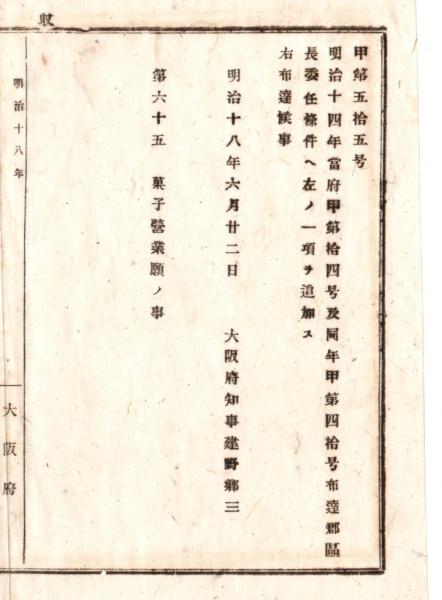 収
甲第五拾五号
明治十四年當府甲第拾四号及同年甲第四拾号布達郡區
長委任條件ヘ左ノ一項ヲ追加ス
右布達候事
明治十八年六月廿二日 大阪府知事建野郷三
第六十五 菓子營業願ノ事
明治十八年
大阪府